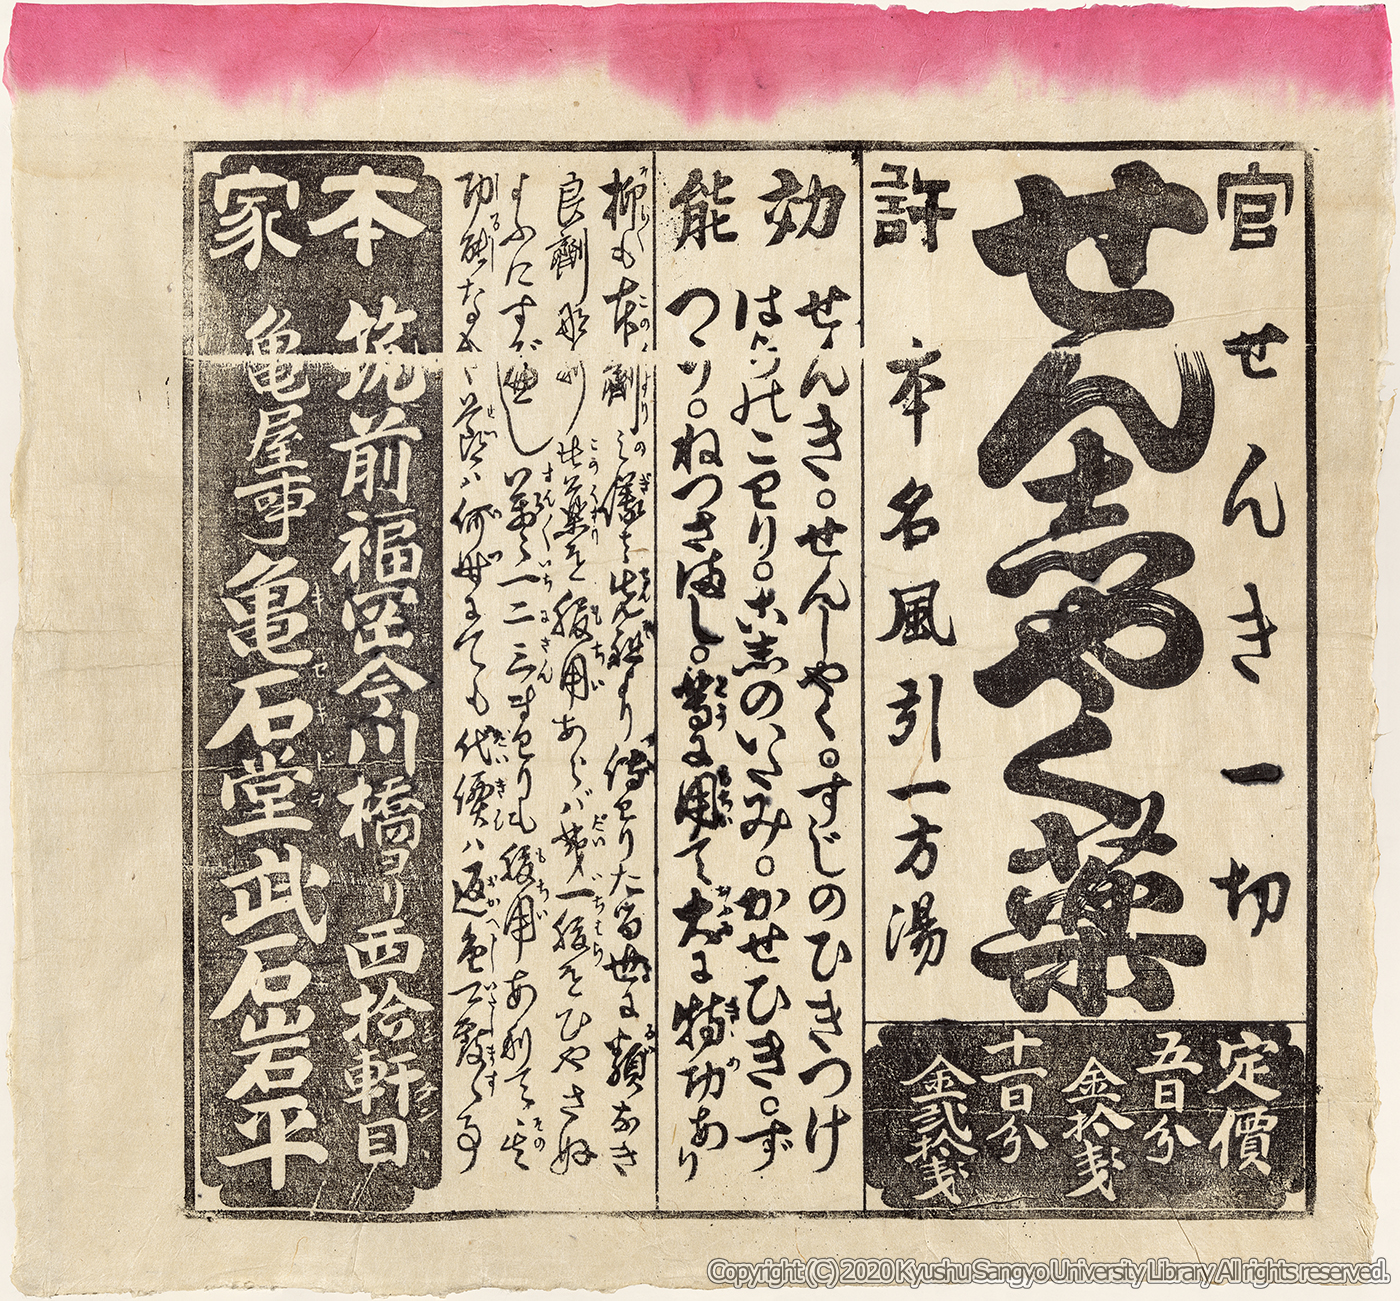 官許
せんきー切
せん志やく薬
本名風引一方湯
定價
五日分
金拾戔
十一日分
金貳拾戔
効能
せんき。せんしやく。すじのひきつけ
はらのこわり。こしのいたみ。かせひき。ず
つう。ねつさまし。等に用て大に特功あり
抑も本劑之儀は先祖より傳わりた當世に類なき
良劑にして此薬を服用あらバ第一腹をひやさぬ
やふにすべし萬々一二三まわりも服用ありて其
功驗なき
節ハ何時にても代價ハ返金可致候事
本家
筑前福岡今川橋ヨリ西拾軒目
亀屋事亀石堂武石岩平
Copyright (C) 2020 Kyushu Sangyo University Library All rights reserved.